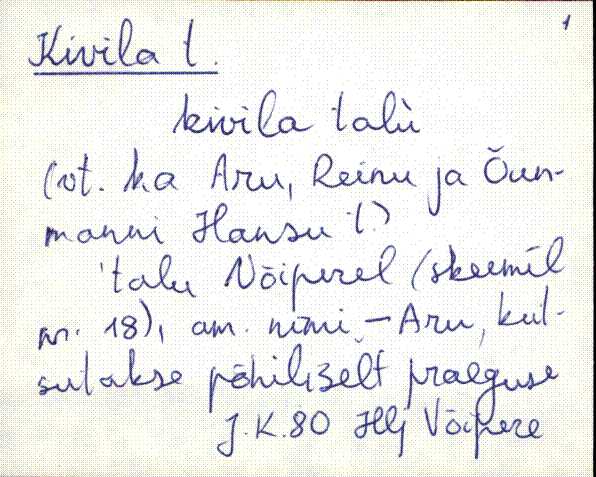 1
Kivila t.
kivila talù
(vt. ka Aru, Reinu ja Õun-
manni Hansu t.)
'talu Võiperel (skeemil
nr. 18), am. nimi – Aru, kut-
sutakse põhiliselt praeguse
J.K.80 Hlj Võipere